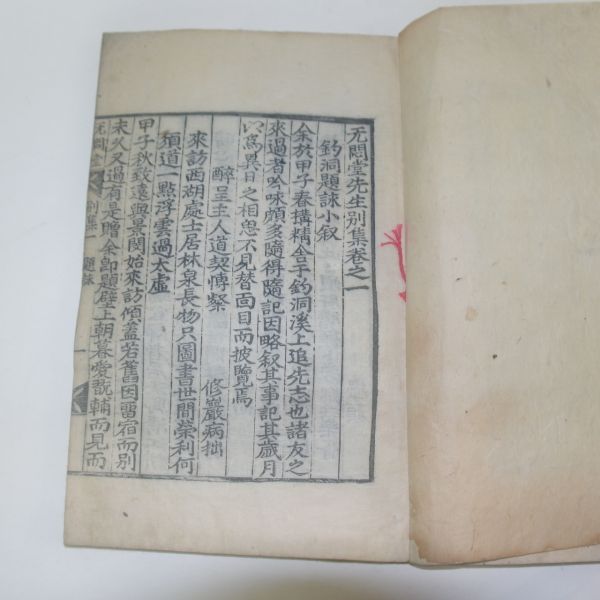 无悶堂先生別集卷之一
釣洞題詠小叙
余於甲子春搆精舍于釣洞溪上追先志也諸友之
來過者吟咏頗多隨得隨記因略叙其事記其歲月
以爲異日之相思不見替面目而披覽焉
醉呈主人道契傳槃 修巖病拙
來訪西湖處士居林泉長物只圖書世間榮利何
須道一點浮雲過太虛
甲子秋致遠與景閔始來訪傾蓋若舊因留宿而別
未久又過有是贈余卽題壁上朝暮愛翫輔而見而
无悶堂 別集一 題詠 一